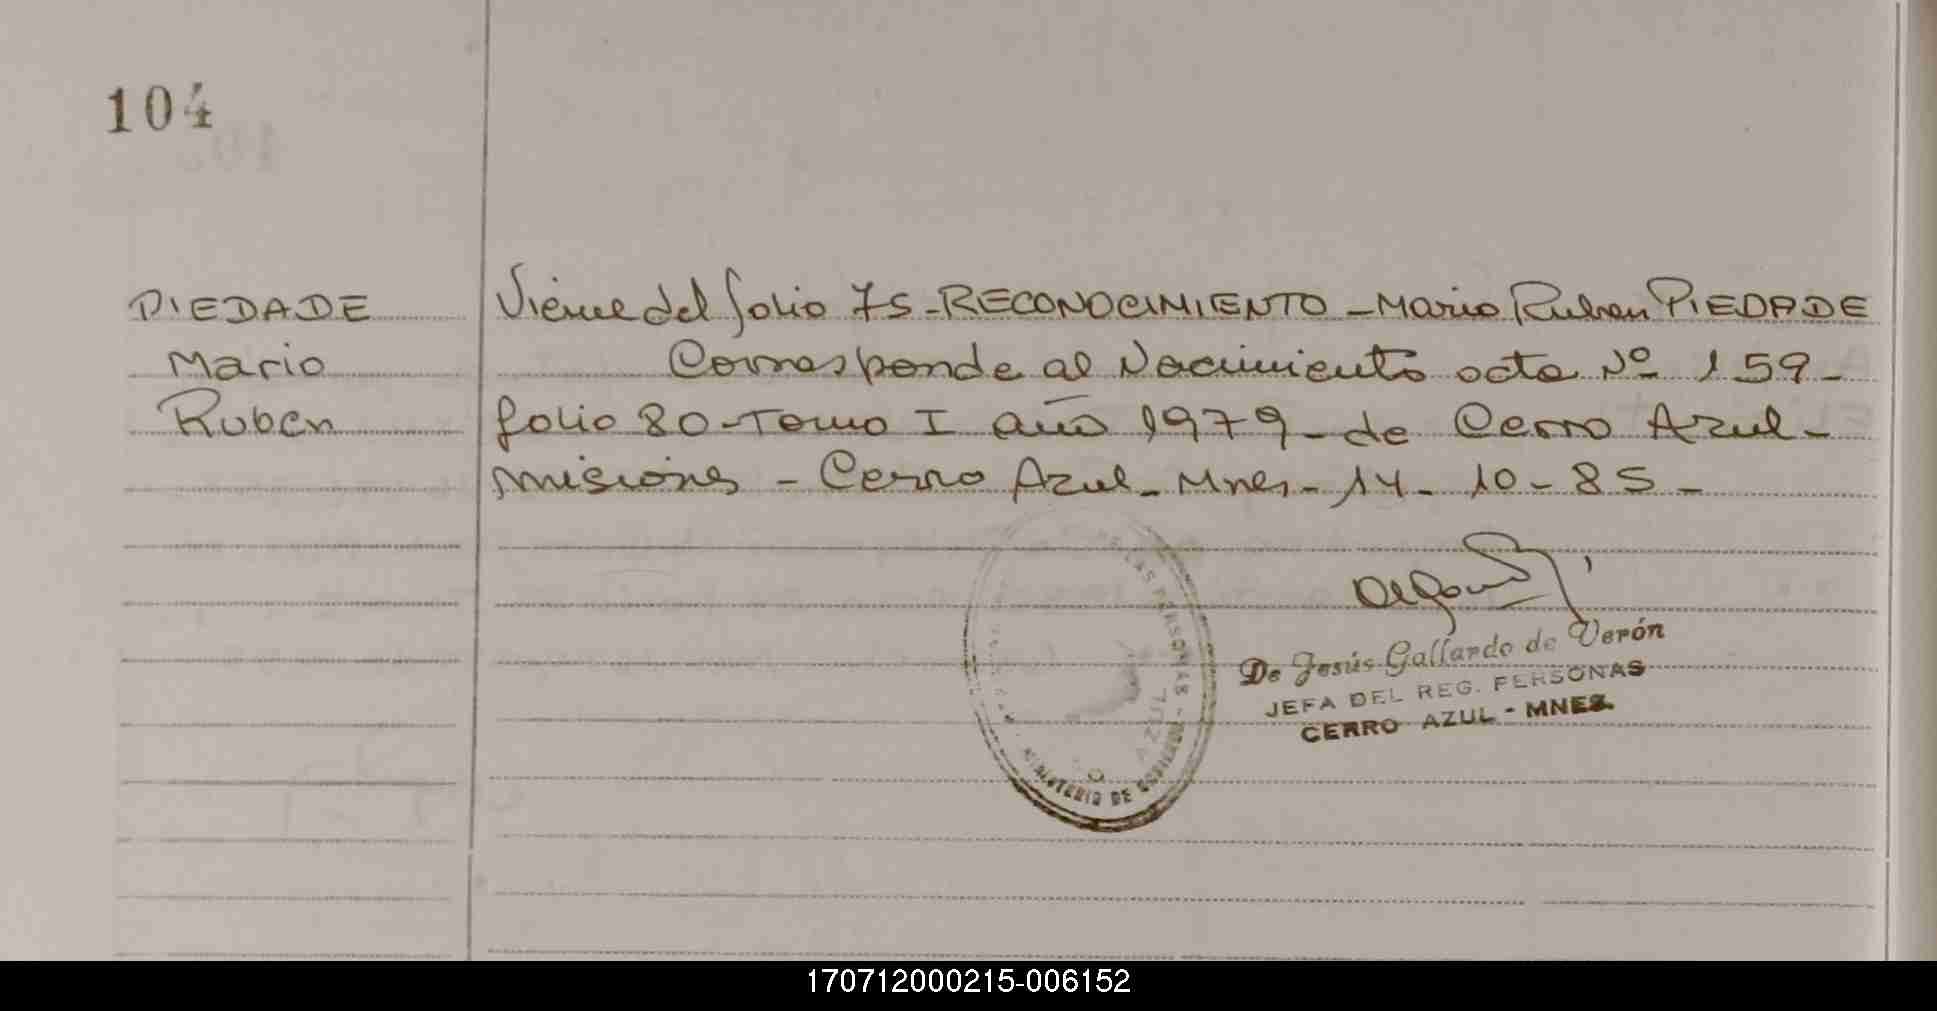 104
PIEDADE
Mario
Ruben
Viene del folio 75-RECONOCIMIENTO-Mario Ruben PIEDADE
Corresponde al Nacimiento acta Nº 159-
folio 80-Tomo I año 1979-de Cerro Azul-
misiones - Cerro Azul-Mnes-14-10-85-
LAS PERSONAS
MINISTERIO DE
De Jesús Gallardo de Verón
JEFA DEL REG. PERSONAS
CERRO AZUL - MNES.
170712000215-006152